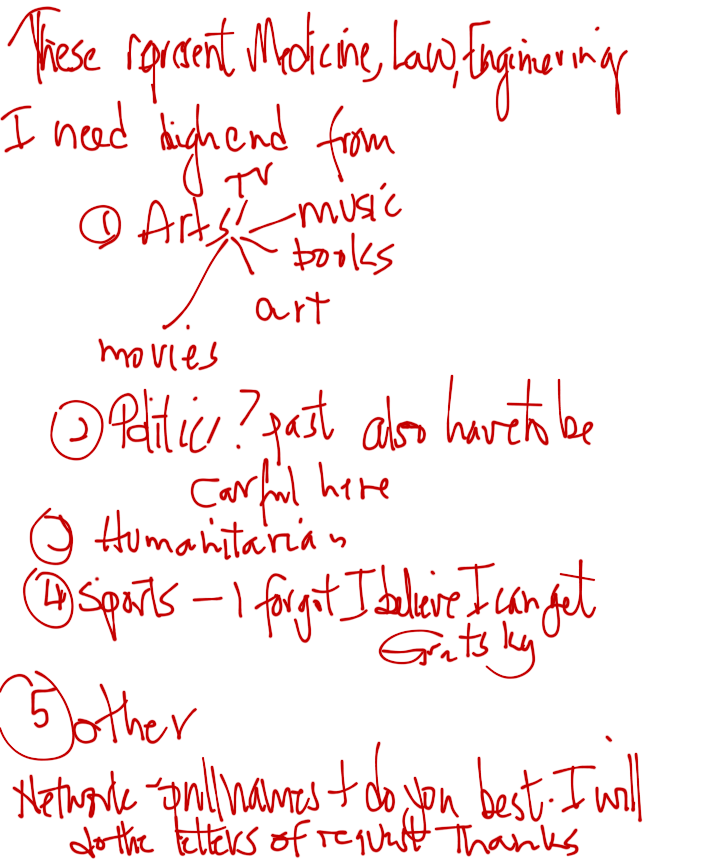 These represent Medicine, Law, Engineering
I need high end from
TV
① Arts music
books
art
movies
② Politics? past also have to be
careful here
③ Humanitarian
④ Sports - I forgot I believe I can get
Gretsky
⑤ other
Network - pull names + do you best. I will
do the letters of request Thanks